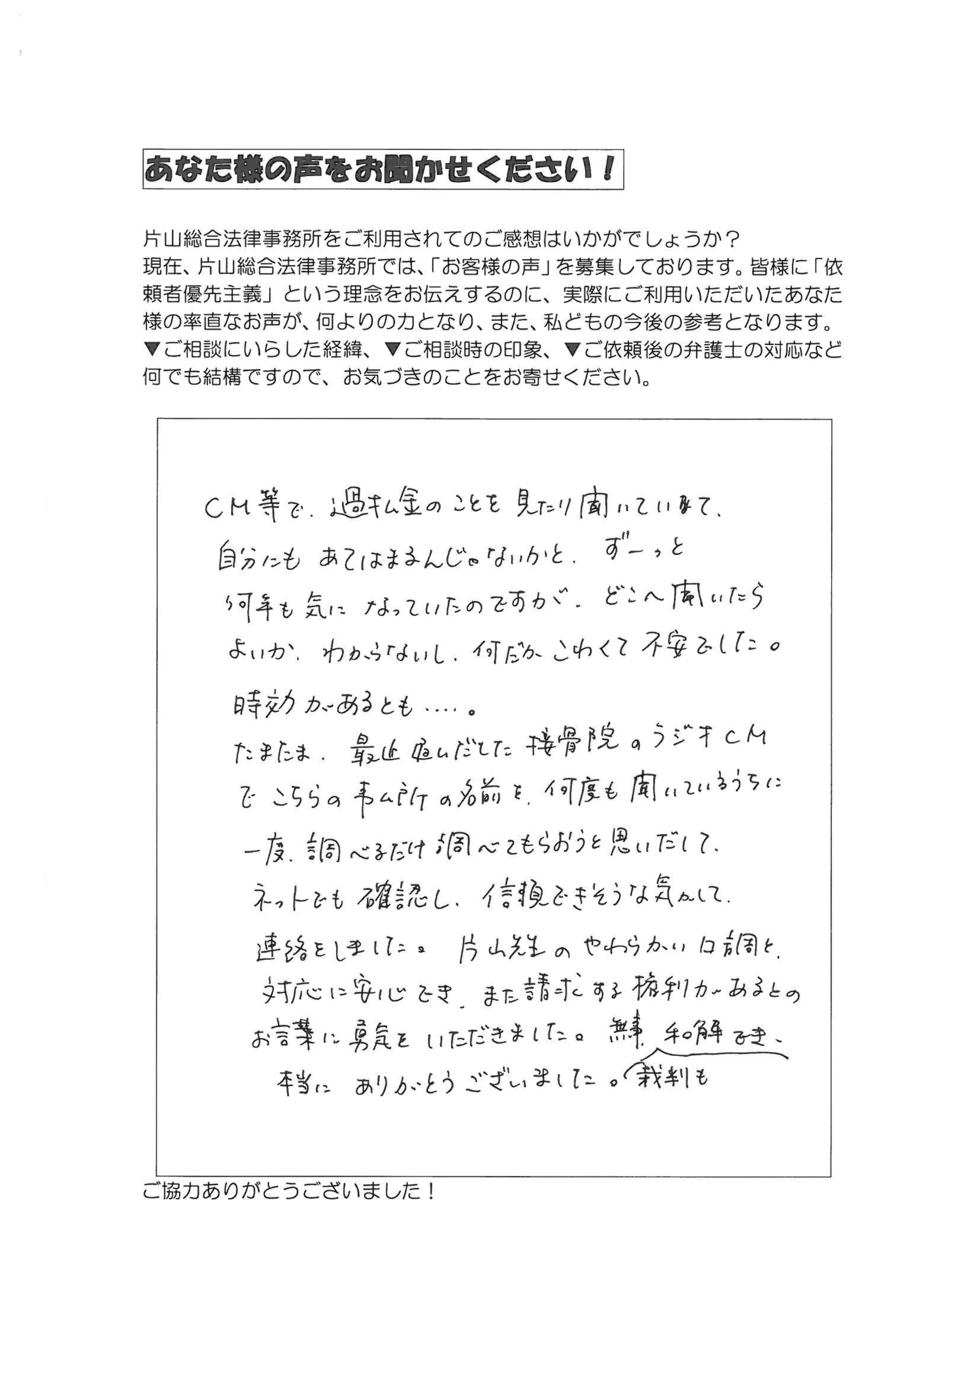 あなた様の声をお聞かせください！
片山総合法律事務所をご利用されてのご感想はいかがでしょうか？
現在、片山総合法律事務所では、「お客様の声」を募集しております。皆様に「依
頼者優先主義」という理念をお伝えするのに、実際にご利用いただいたあなた
様の率直なお声が、何よりの力となり、また、私どもの今後の参考となります。
▼ご相談にいらした経緯、▼ご相談時の印象、▼ご依頼後の弁護士の対応など
何でも結構ですので、お気づきのことをお寄せください。
CM等で、過払金のことを見たり聞いていて、
自分にもあてはまるんじゃないかと、ずーっと
何年も気になっていたのですが、どこへ聞いたら
よいか、わからないし、何だかこわくて不安でした。
時効があるとも…‥。
たまたま、最近 接骨院のラジオCM
でこちらの事ム所の名前を、何度も聞いているうちに
一度、調べるだけ調べてもらおうと思いだして、
ネットでも確認し、信頼できそうな気がして、
連絡をしました。片山先生のやわらかい口調と、
対応に安心でき、また請求する権利があるとの
お言葉に勇気をいただきました。無事、和解でき、
本当にありがとうございました。裁判も
ご協力ありがとうございました！